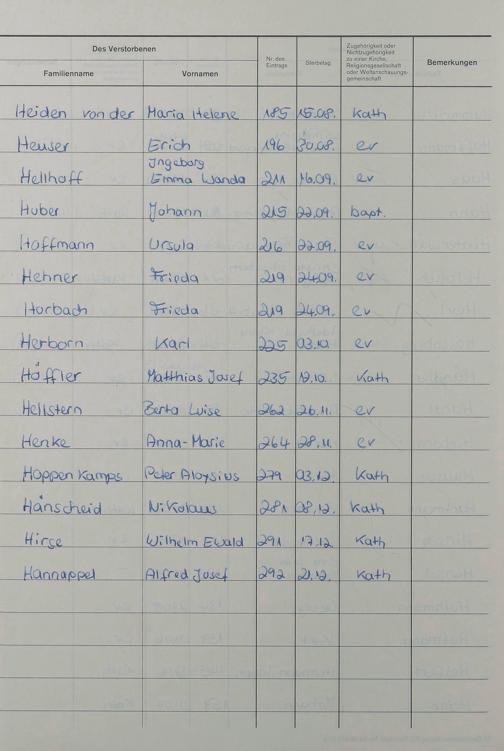 Des Verstorbenen
Familienname Vornamen Nr. des Eintrags Sterbetag Zugehörigkeit oder Nichtzugehörigkeit zu einer Kirche, Religionsgesellschaft oder Weltanschauungsgemeinschaft Bemerkungen
Heiden von der Maria Helene 185 15.08. Kath
Heuser Erich 196 30.08. ev
Ingeborg
Hellhoff Emma Wanda 211 16.09. ev
Huber Johann 215 22.09. bapt.
Hoffmann Ursula 216 22.09. ev
Hehner Frieda 219 24.09. ev
Horbach Frieda 219 24.09. ev
Herborn Karl 225 03.10. ev
Höffler Matthias Josef 235 19.10. Kath
Hellstern Berta Luise 262 26.11. ev
Henke Anna-Marie 264 28.11. ev
Hoppen Kamps Peter Aloysius 279 03.12. Kath
Hånscheid Nikolaus 281 08.12. Kath
Hirse Wilhelm Ewald 291 17.12 Kath
Hannappel Alfred Josef 292 21.12. Kath